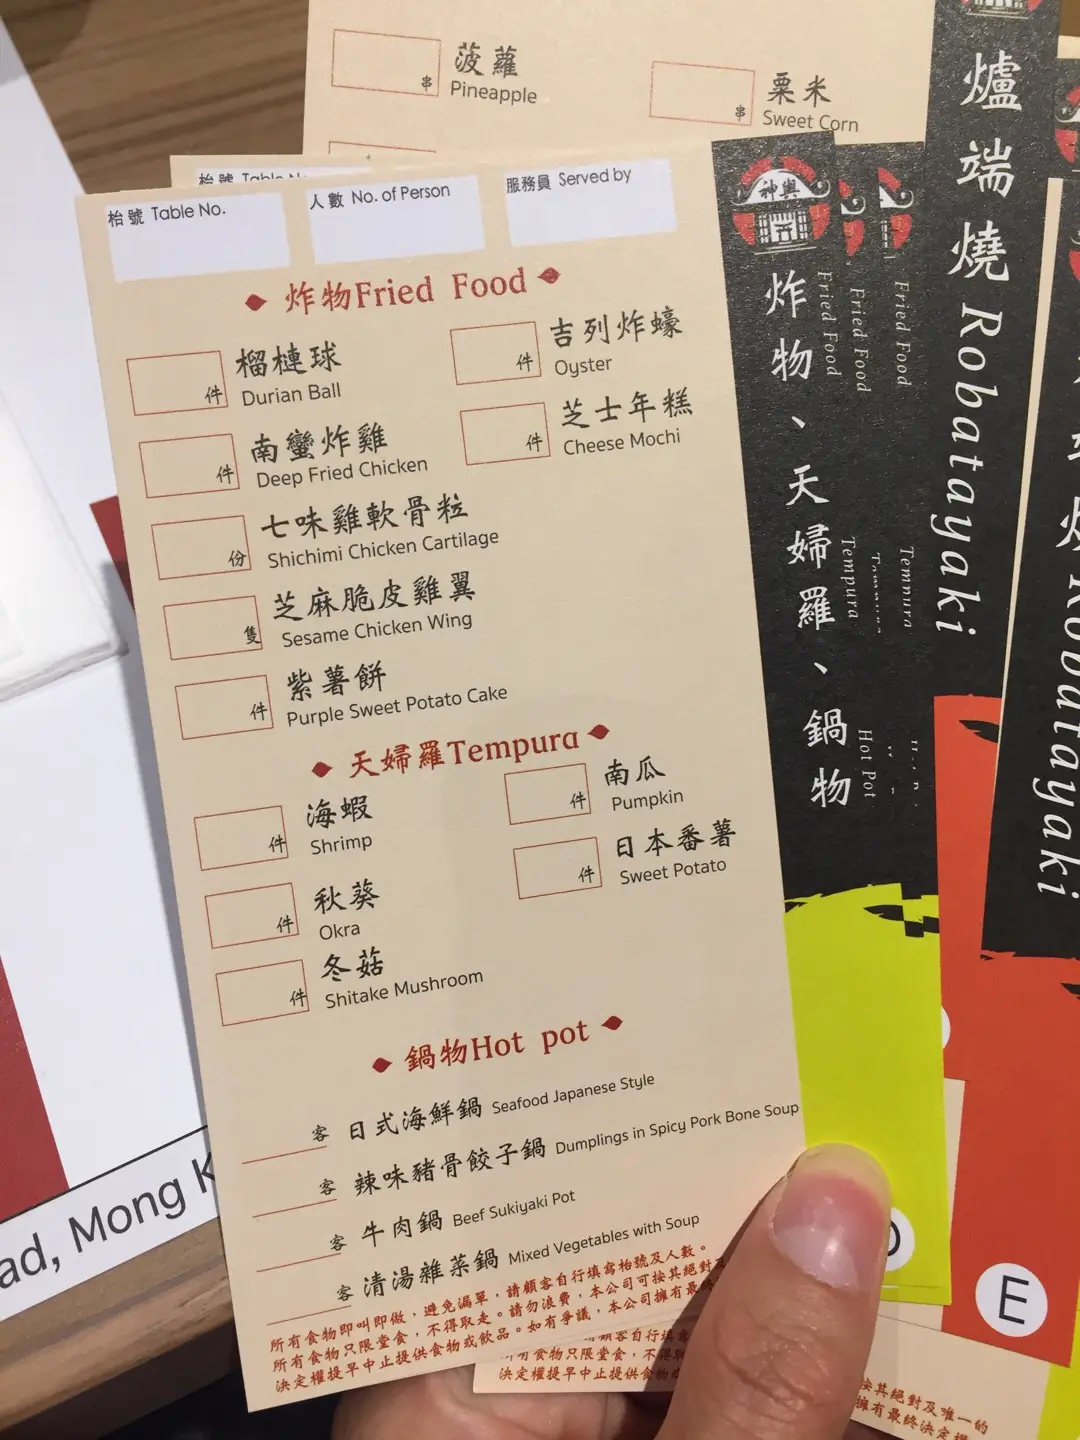 菠蘿
Pineapple
串
粟米
Sweet Corn
串
枱號 Table No.
人數 No. of Person
服務員 Served by
炸物Fried Food
榴槤球
Durian Ball
件
吉列炸蠔
Oyster
件
南蠻炸雞
Deep Fried Chicken
件
芝士年糕
Cheese Mochi
件
七味雞軟骨粒
Shichimi Chicken Cartilage
份
芝麻脆皮雞翼
Sesame Chicken Wing
隻
紫薯餅
Purple Sweet Potato Cake
件
天婦羅Tempura
海蝦
Shrimp
件
南瓜
Pumpkin
件
秋葵
Okra
件
日本番薯
Sweet Potato
件
冬菇
Shitake Mushroom
件
鍋物Hot pot
客 日式海鮮鍋 Seafood Japanese Style
客 辣味豬骨餃子鍋 Dumplings in Spicy Pork Bone Soup
客 牛肉鍋 Beef Sukiyaki Pot
客 清湯雜菜鍋 Mixed Vegetables with Soup
所有食物即叫即做，避免漏單，請顧客自行填寫枱號及人數。
所有食物只限堂食，不得取走。請勿浪費，本公司可按其絕對及
決定權提早中止提供食物或飲品。如有爭議，本公司擁有最終
神輿
炸物、天婦羅、鍋物
Fried Food
Tempura
Hot Pot
Fried Food
Fried Food
Tempura
爐端燒 Robatayaki
Robatayaki
E
顧客自行填寫
有食物只限堂食，不得取
決定權提早中止提供食物或
按其絕對及唯一的
擁有最終決定權
ad, Mong K